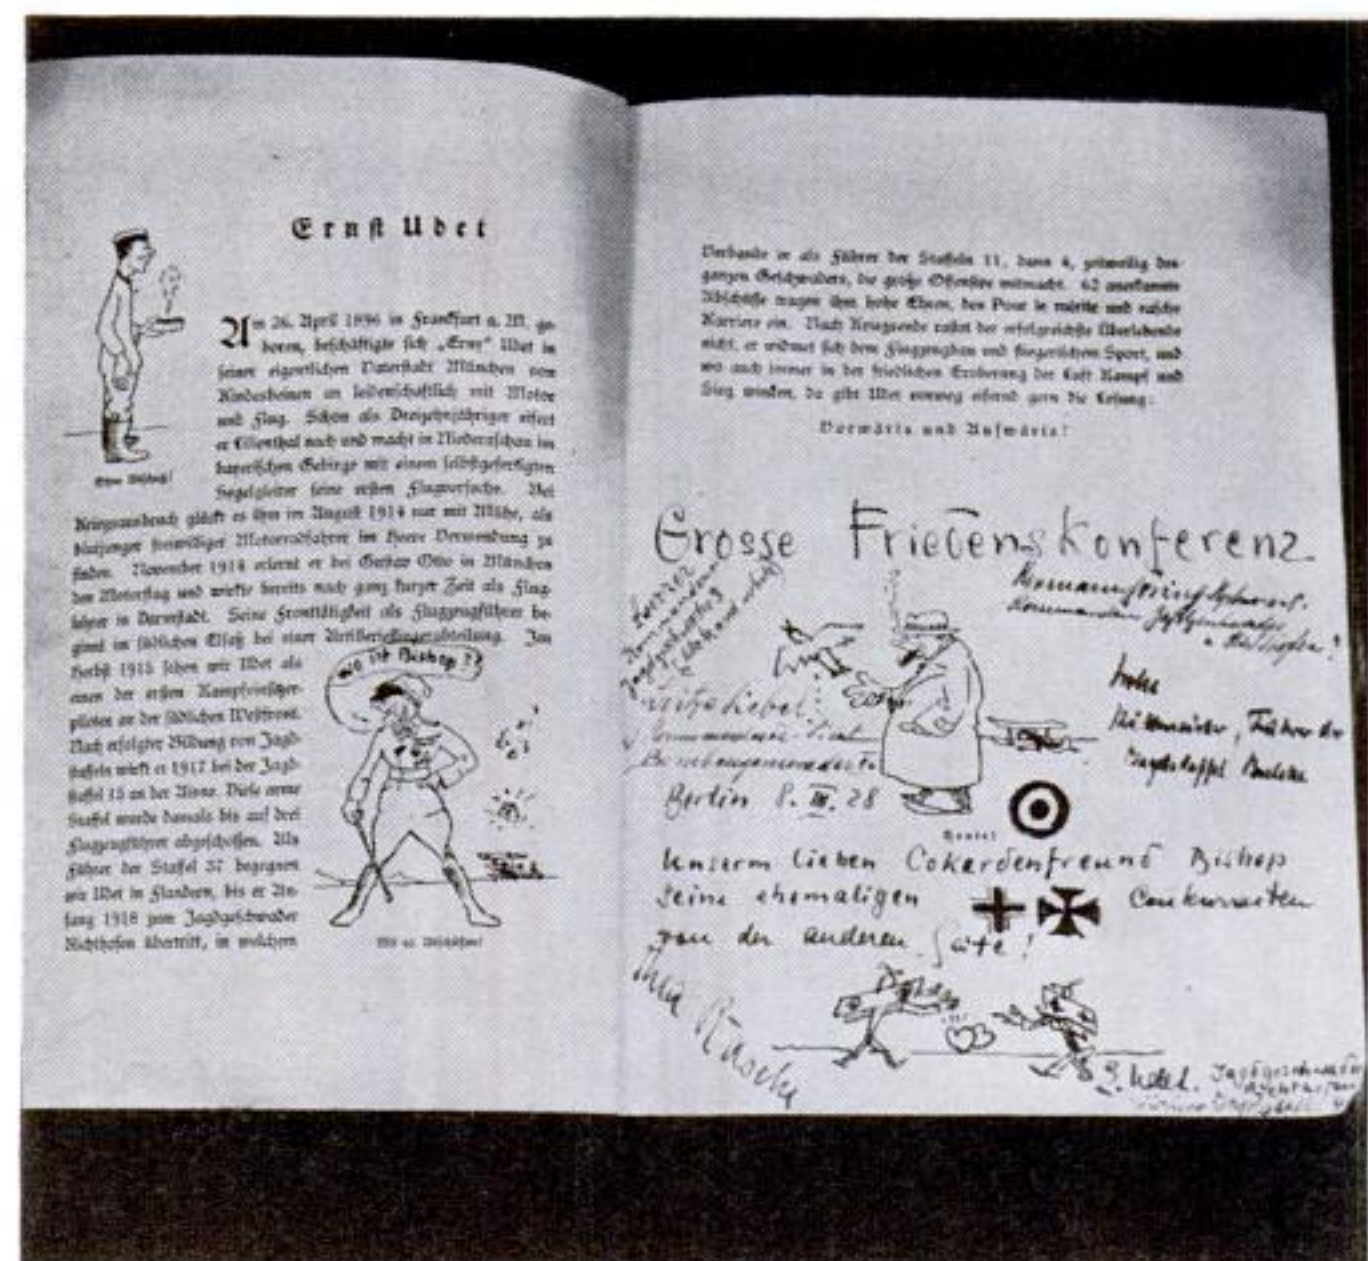 Ernst Udet
Am 26. April 1896 in Frankfurt a. M. ge-
boren, beschäftigte sich „Erny“ Udet in
seiner eigentlichen Vaterstadt München von
Kindesbeinen an leidenschaftlich mit Motor
und Flug. Schon als Dreizehnjähriger eifert
er Lilienthal nach und macht in Niederaschau im
bayerischen Gebirge mit einem selbstgefertigten
Segelgleiter seine ersten Flugversuche. Bei
Kriegsausbruch glückt es ihm im August 1914 nur mit Mühe, als
blutjunger freiwilliger Motorradfahrer im Heere Verwendung zu
finden. November 1914 erlernt er bei Gustav Otto in München
den Motorflug und wirkt bereits nach ganz kurzer Zeit als Flug-
lehrer in Darmstadt. Seine Fronttätigkeit als Flugzeugführer be-
ginnt im südlichen Elsaß bei einer Artilleriefliegerabteilung. Im
Herbst 1915 sehen wir Udet als
einen der ersten Kampfeinsitzer-
piloten an der südlichen Westfront.
Nach erfolgter Bildung von Jagd-
staffeln wirkt er 1917 bei der Jagd-
staffel 15 an der Aisne. Diese arme
Staffel wurde damals bis auf drei
Flugzeugführer abgeschossen. Als
Führer der Staffel 37 begegnen
wir Udet in Flandern, bis er An-
fang 1918 zum Jagdgeschwader
Richthofen übertritt, in welchem
wo ist Bishop??
Mit 62 Abschüssen!
Verbande er als Führer der Staffeln 11, dann 4, zeitweilig des
ganzen Geschwaders, die große Offensive mitmacht. 62 anerkannte
Abschüsse tragen ihm hohe Ehren, den Pour le mérite und rasche
Karriere ein. Nach Kriegsende rastet der erfolgreichste Überlebende
nicht, er widmet sich dem Flugzeugbau und fliegerischem Sport, und
wo auch immer in der friedlichen Eroberung der Luft Kampf und
Sieg winken, da gibt Udet vorweg eifernd gern die Losung:
Vorwärts und Aufwärts!
Grosse Friedenskonferenz
Berlin 8. III. 28
Heute!
Unserm lieben Cokardenfreund Bishop
seine ehemaligen Conkurrenten
von der anderen Seite!
Thea Rasche